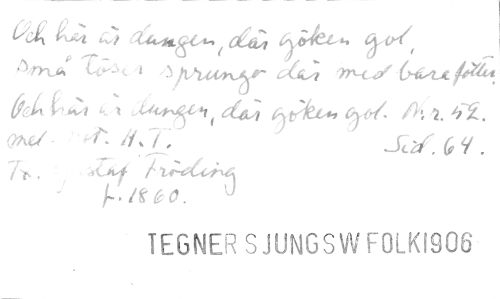 Och här är dungen, där göken gol,
små töser sprungo där med bara fötter.
Och här är dungen, där göken gol. N.r. 52.
mel. H. T. Sid. 64.
Tx. Gustaf Fröding
f. 1860.
TEGNER SJUNGSWFOLK1906